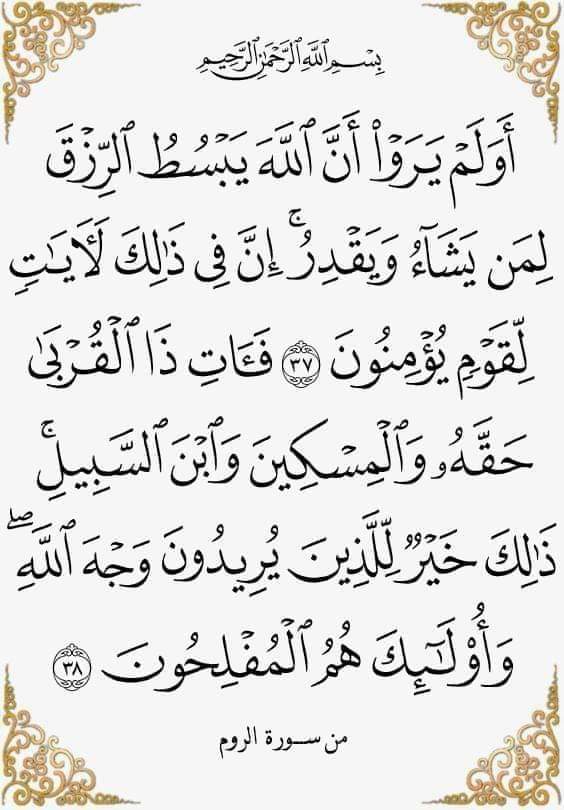 بِسْمِ ٱللَّهِ ٱلرَّحْمَٰنِ ٱلرَّحِيمِ
أَوَلَمْ يَرَوْا۟ أَنَّ ٱللَّهَ يَبْسُطُ ٱلرِّزْقَ
لِمَن يَشَآءُ وَيَقْدِرُ ۚ إِنَّ فِى ذَٰلِكَ لَـَٔايَـٰتٍ
لِّقَوْمٍ يُؤْمِنُونَ ٣٧ فَـَٔاتِ ذَا ٱلْقُرْبَىٰ
حَقَّهُۥ وَٱلْمِسْكِينَ وَٱبْنَ ٱلسَّبِيلِ ۚ
ذَٰلِكَ خَيْرٌ لِّلَّذِينَ يُرِيدُونَ وَجْهَ ٱللَّهِ ۖ
وَأُو۟لَـٰٓئِكَ هُمُ ٱلْمُفْلِحُونَ ٣٨
من سورة الروم